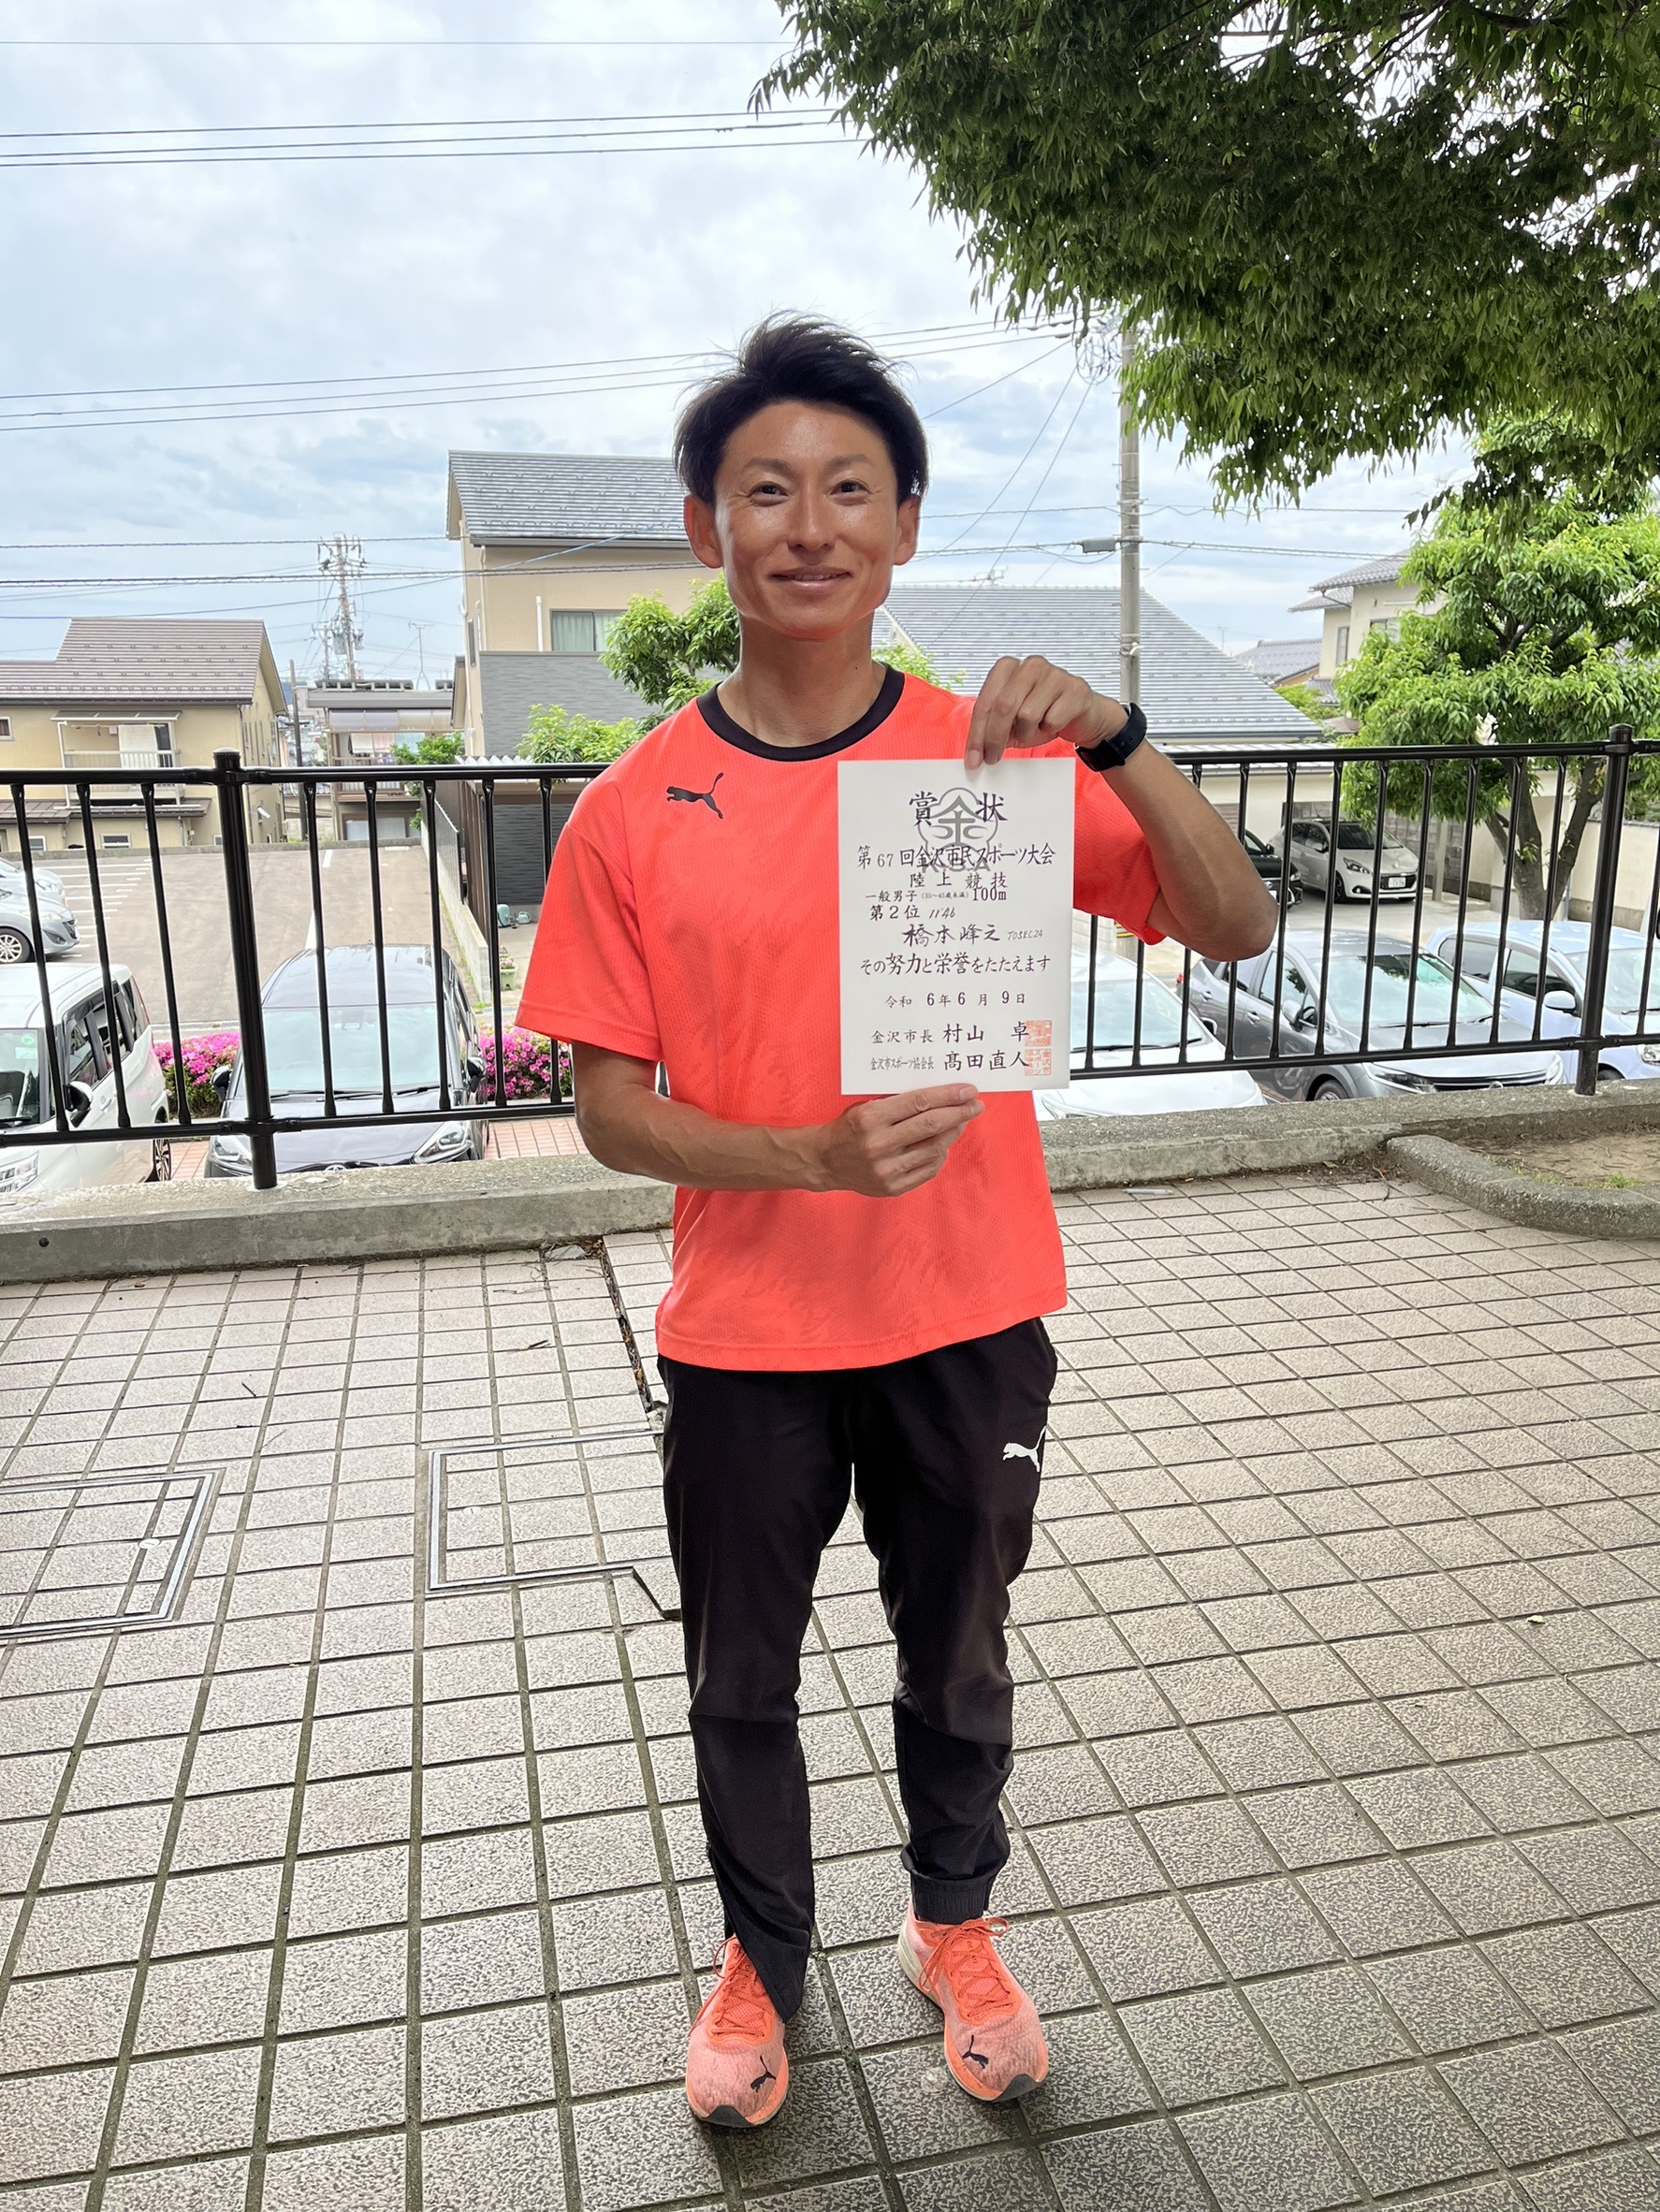 賞状
第67回金沢市民スポーツ大会
陸上競技
一般男子(35~45歳未満)100m
第2位 11"46
橋本峰之 TOSEC24
その努力と栄誉をたたえます
令和6年6月9日
金沢市長 村山 卓
金沢市スポーツ協会長 髙田直人